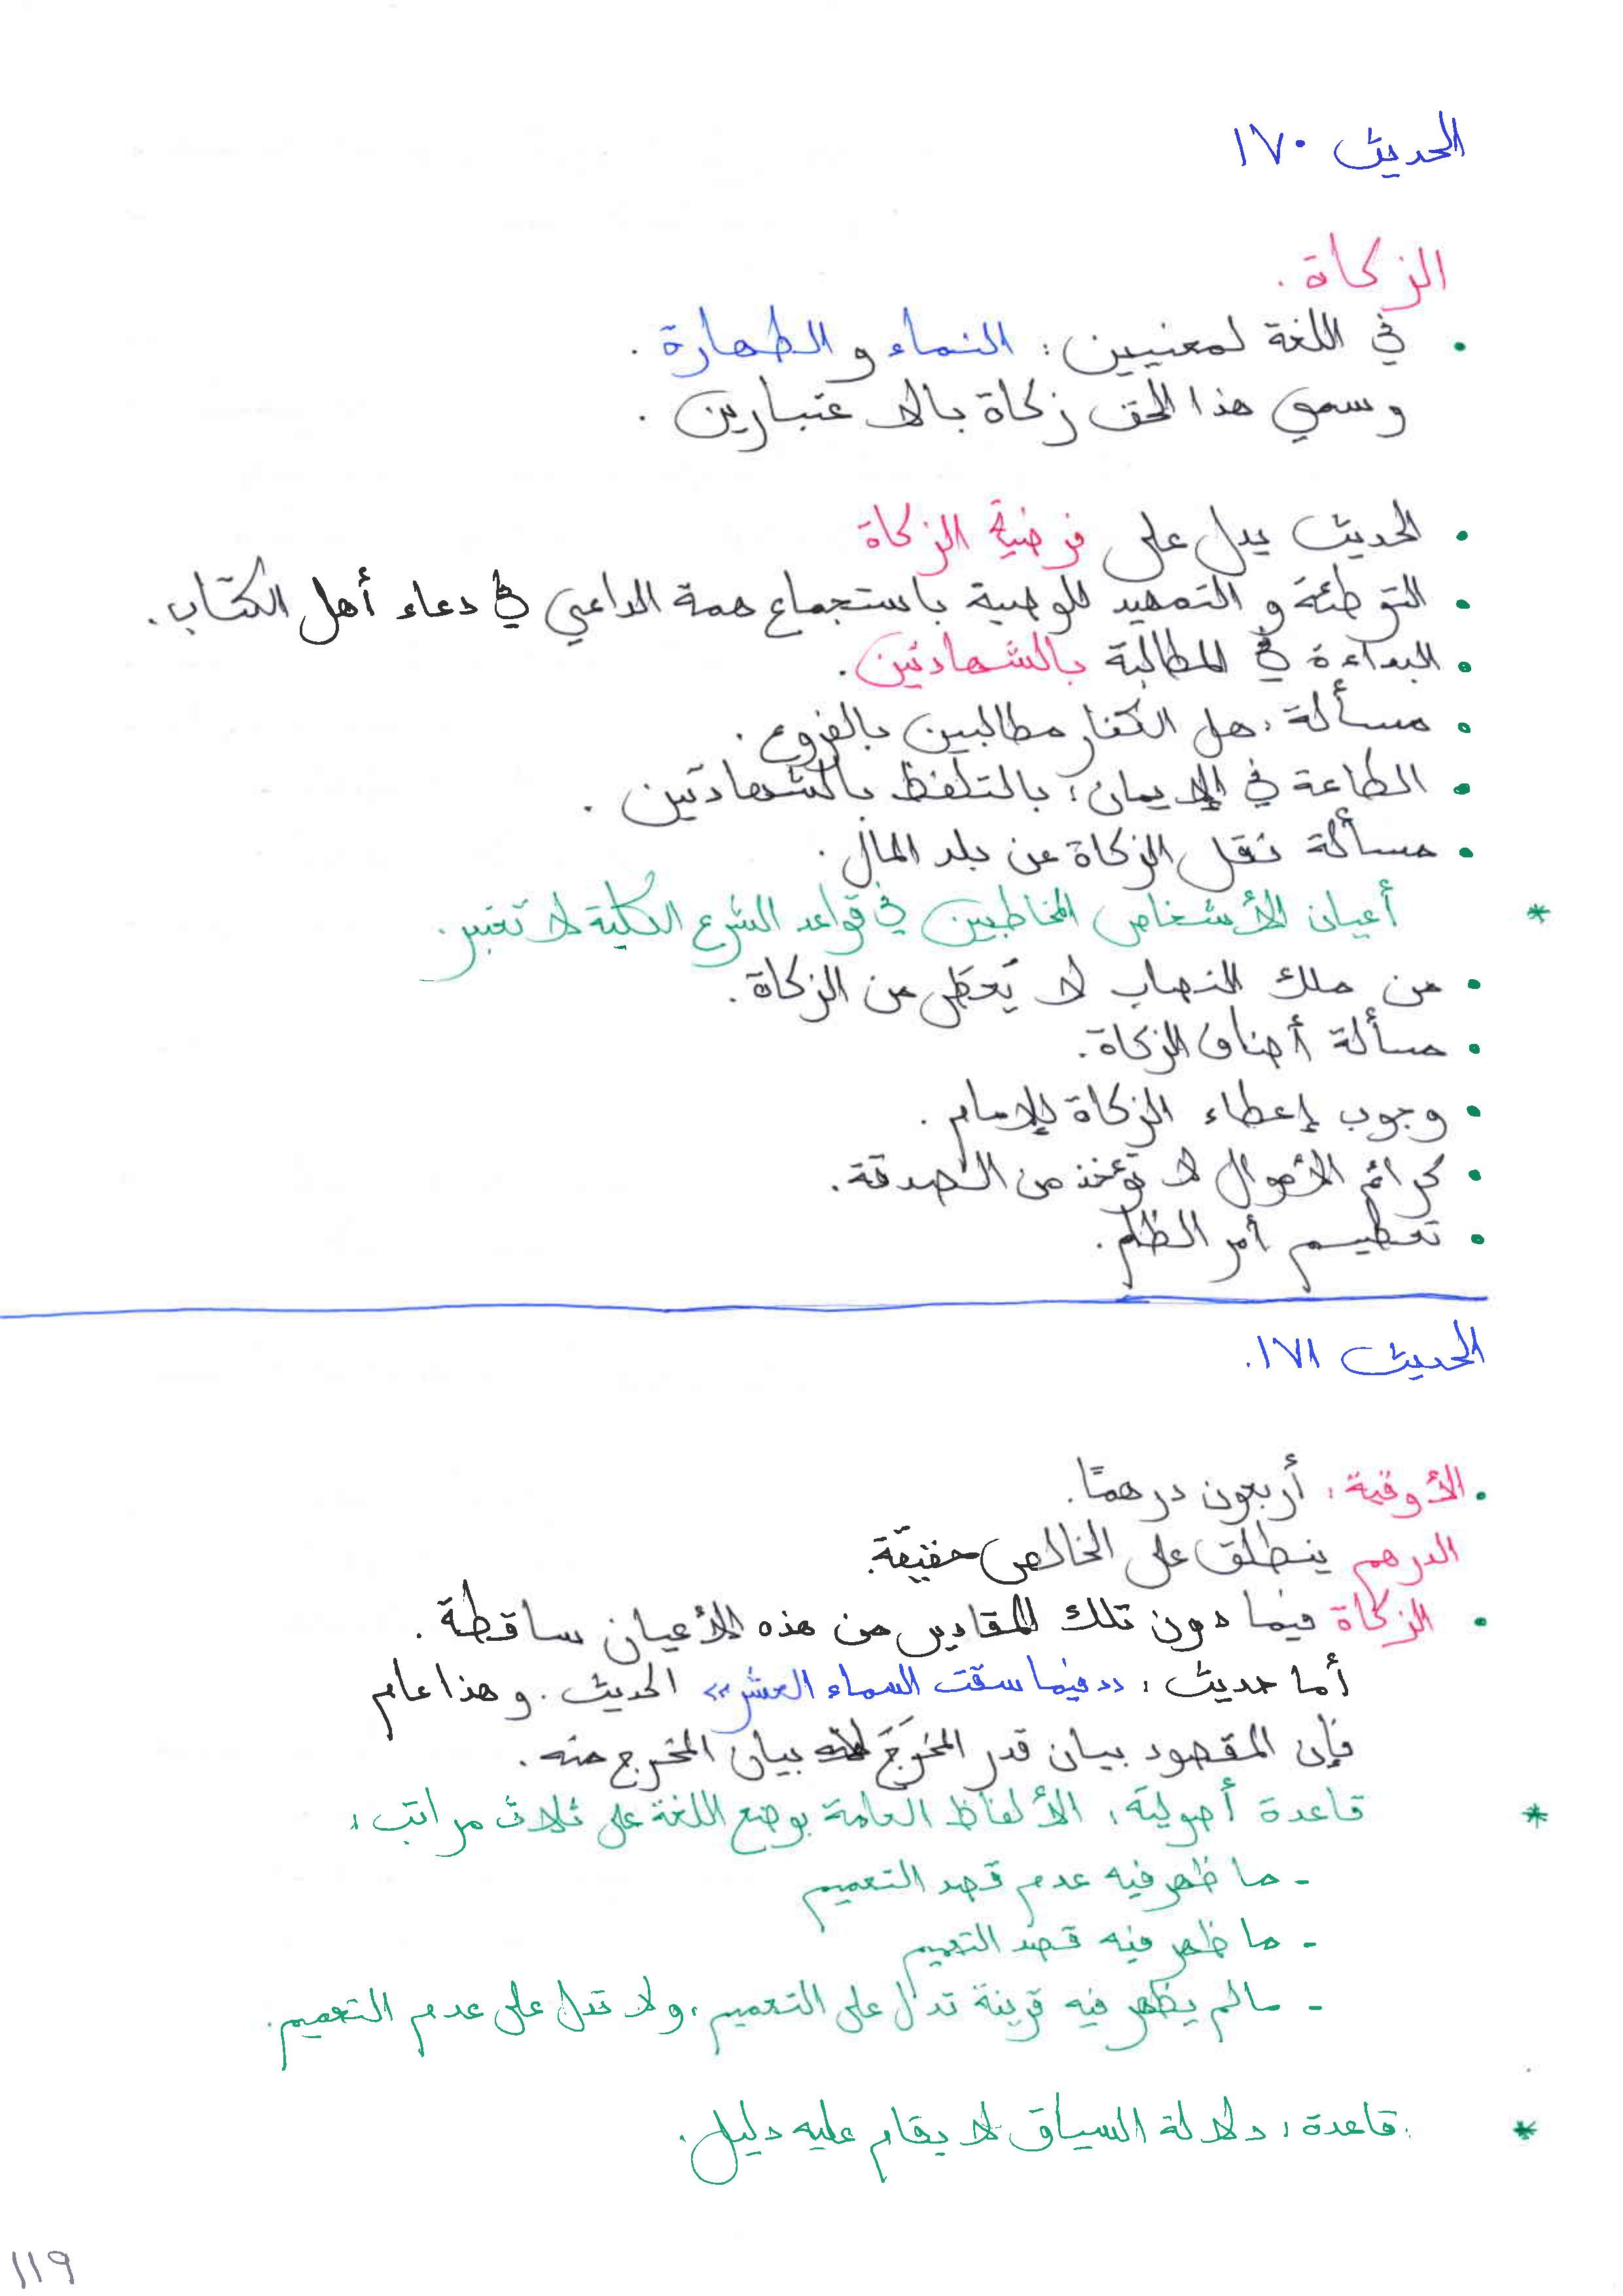 الحديث ١٧٠
الزكاة .
• في اللغة لمعنيين : النماء و الطهارة .
وسمي هذا الحق زكاة بالاعتبارين .
• الحديث يدل على فرضية الزكاة
• التوطئة و التمهيد للوصية باستجماع همة الداعي في دعاء أهل الكتاب .
• البداءة في المطالبة بالشهادتين .
• مسألة : هل الكفار مطالبين بالفروع .
• الطاعة في الإيمان : بالتلفظ بالشهادتين .
• مسألة نقل الزكاة عن بلد المال .
* أعيان الأشخاص المخاطبين في قواعد الشرع الكلية لا تعتبر .
• من ملك النصاب لا يُعطَى من الزكاة .
• مسألة أصناف الزكاة .
• وجوب إعطاء الزكاة للإمام .
• كرائم الأموال لا تؤخذ من الصدقة .
• تعظيم أمر الظلم .
الحديث ١٧١ .
• الأوقية : أربعون درهمًا .
الدرهم ينطلق على الخالص حقيقة .
• الزكاة فيما دون تلك المقادير من هذه الأعيان ساقطة .
أما حديث : « فيما سقت السماء العشر » الحديث . وهذا عام
فإن المقصود بيان قدر المخرَجَ بيان المخرج منه .
* قاعدة أصولية : الألفاظ العامة بوضع اللغة على ثلاث مراتب :
- ما ظهر فيه عدم قصد التعميم
- ما ظهر فيه قصد التعميم
- مالم يظهر فيه قرينة تدل على التعميم ، ولا تدل على عدم التعميم .
* قاعدة : دلالة السياق لا يقام عليه دليل .
١١٩